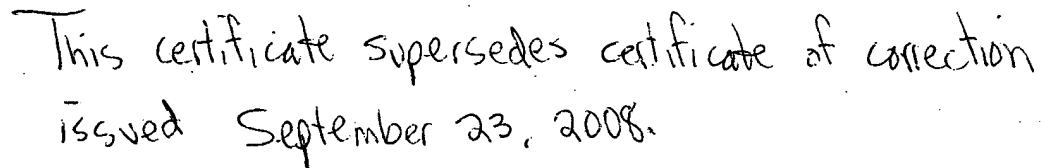 This certificate supersedes certificate of correction
issued September 23, 2008.